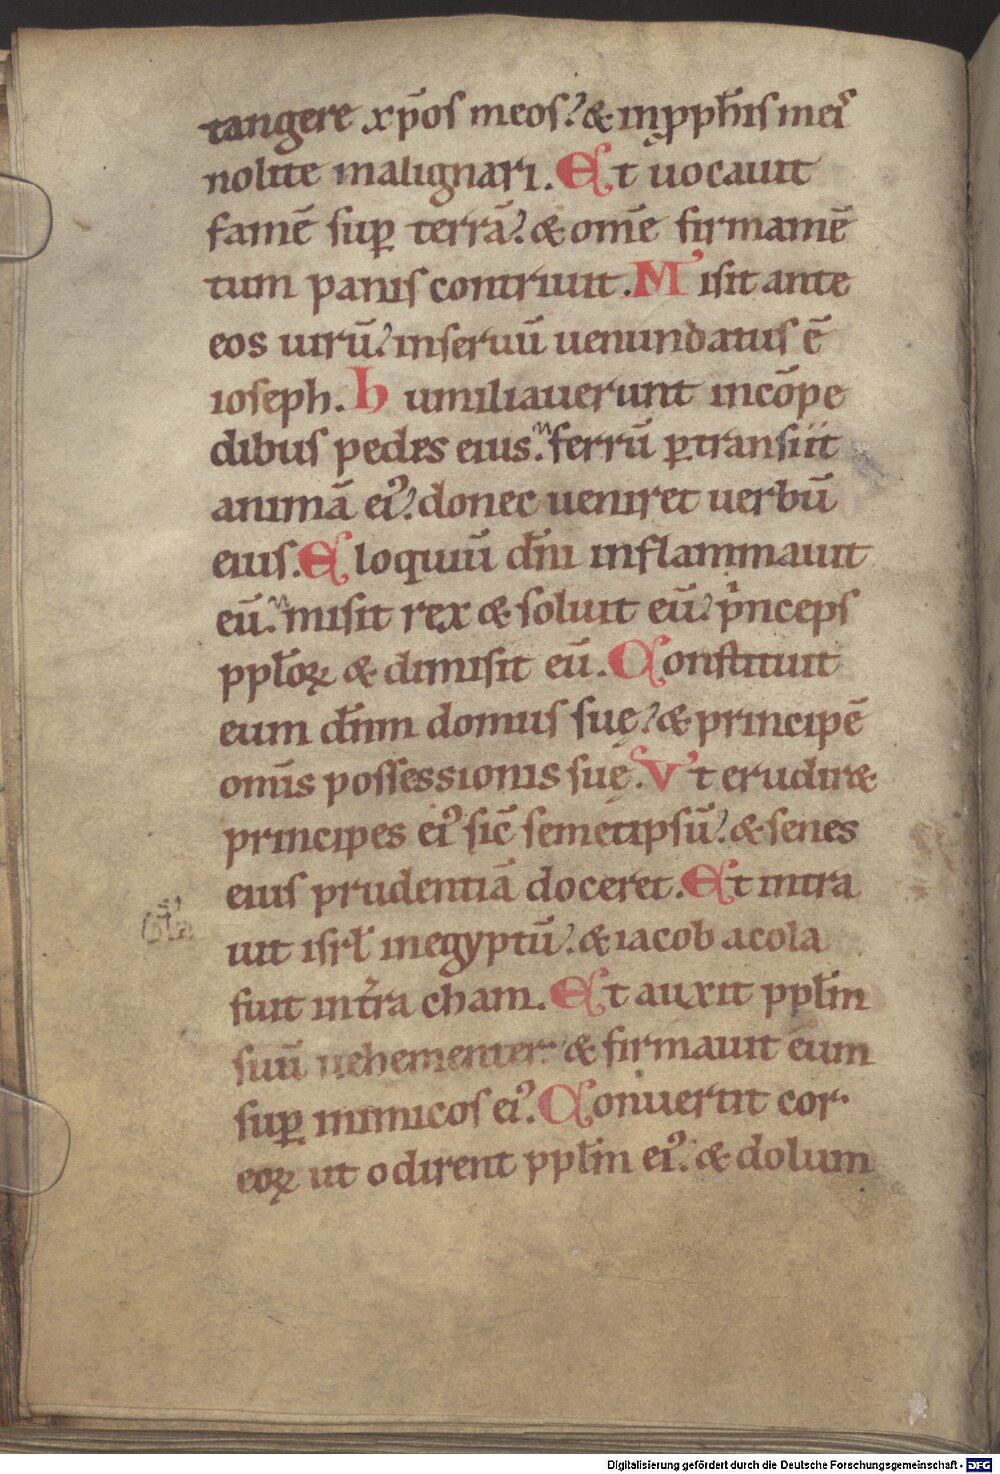 tangere xp̄os meos? & in ꝓph̄is meiꝰ
nolite malignari. Et uocauit
famē suꝑ terrā? & om̄e firmamē
tum panis contriuit. Misit ante
eos uirū? inseruū uenundatus ē
ioseph. humiliauerunt incōpe
dibus pedes eius. ferrū ꝑtransiit
animā eiꝰ? donec ueniret uerbū
eius. Eloquiū dn̄i inflammauit
eū. misit rex & soluit eū? pͥnceps
ppl̄oꝝ & dimisit eū. Constituit
eum dn̄m domus suę? & principē
om̄is possessionis suę. Vt erudir&
principes eiꝰ sic̄ semetipsū? & senes
eius prudentiā doceret. Et intra
uit isrl̄ inegyptū? & iacob acola
fuit int̄ra cham. Et auxit ppl̄m
suū uehementer & firmauit eum
suꝑ inimicos eiꝰ. Conuertit cor
eoꝝ ut odirent ppl̄m eiꝰ. & dolum
Digitalisierung gefördert durch die Deutsche Forschungsgemeinschaft - DFG